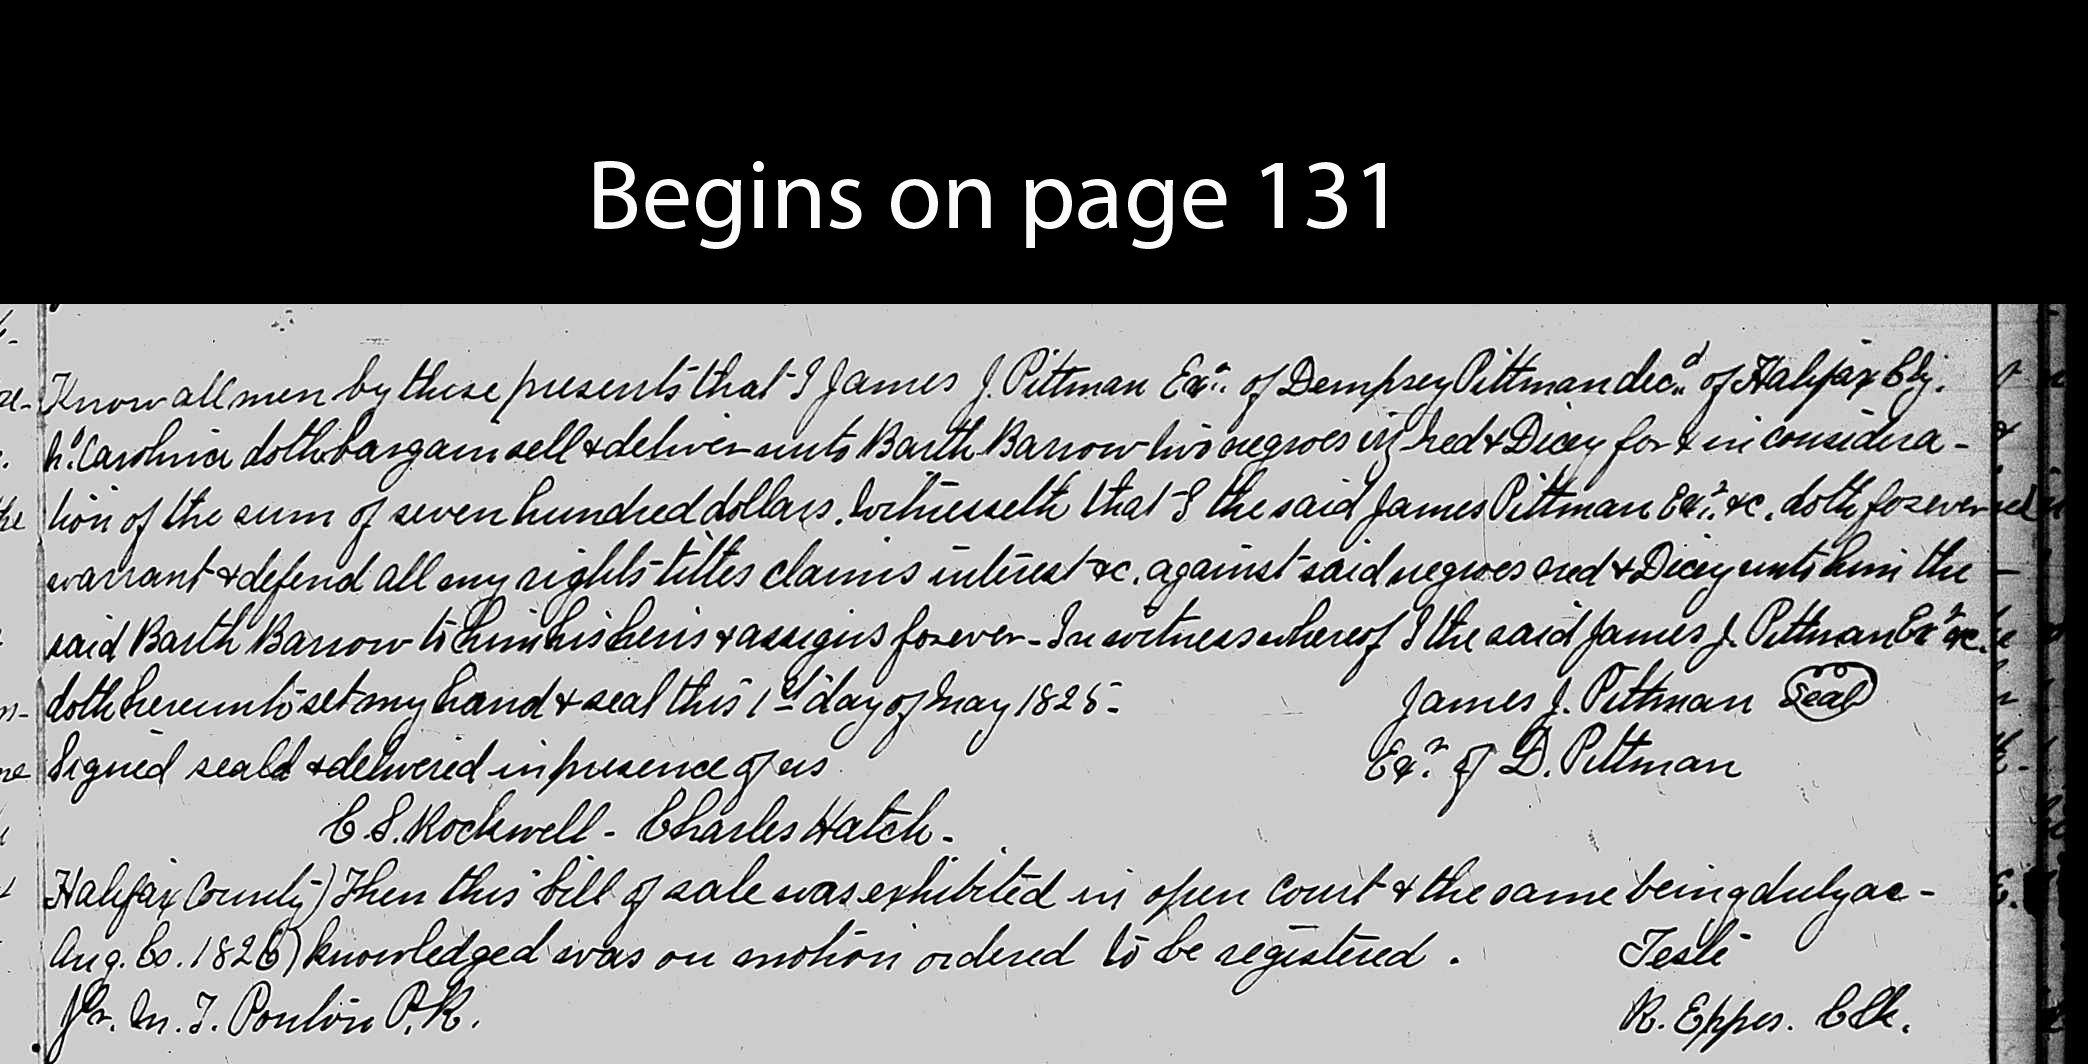 Begins on page 131
Know all men by these presents that I James J. Pittman Exr. of Dempsey Pittman decd. of Halifax Cty.
No. Carolina doth bargain sell & deliver unto Barth Barrow two negroes viz Ned & Dicey for & in considera-
tion of the sum of seven hundred dollars. Witnesseth that I the said James Pittman Exr. &c. doth forever
warrant & defend all my rights titles claims interest &c. against said negroes & Dicey unto him the
said Barth Barrow to him his heirs & assigns forever - In witness whereof I the said James J. Pittman Exr &c.
doth hereunto set my hand & seal this 1st day of May 1825 - James J. Pittman Seal
Signed seald & delivered in presence of us Exr. of D. Pittman
C. S. Rockwell - Charles Hatch -
Halifax County) Then this bill of sale was exhibited in open Court & the same being duly ac-
Aug. Co. 1826) knowledged was on motion ordered to be registered. Teste
Jr. M. T. Ponton P.R. R. Eppes. Clk.